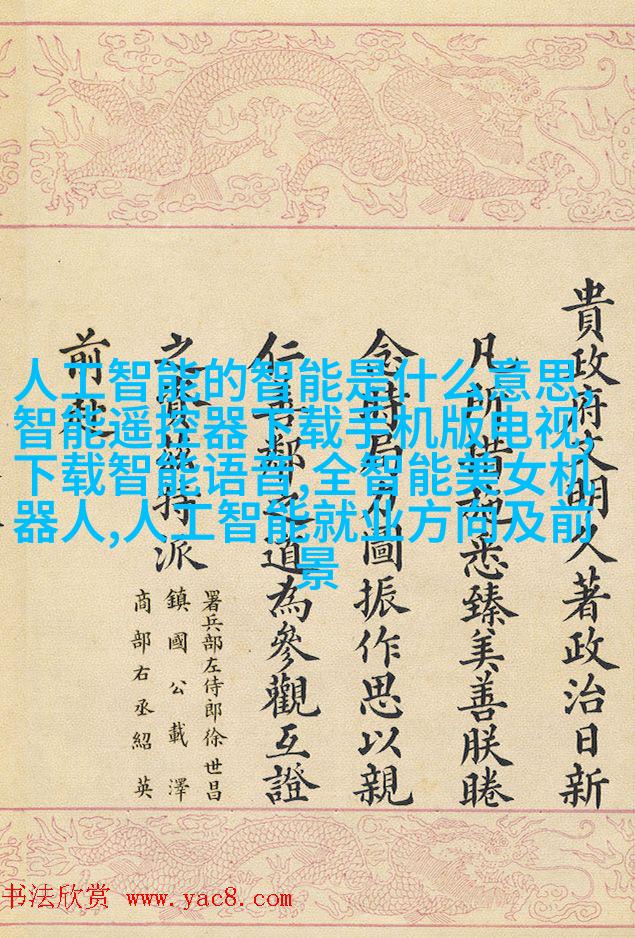 人工智能的智能是什么意思,
智能遥控器下载手机版电视,
下载智能语音,全智能美女机
器人,人工智能就业方向及前
景
貴政府文明久著政治日新
凡所措施悉臻美善朕睠
念時局力圖振作思以親
仁善鄰之道為參觀互證
之資茲特派
署兵部左侍郎徐世昌
鎮國公載澤
商部右丞紹英
前赴
书法欣赏 www.yac8.com